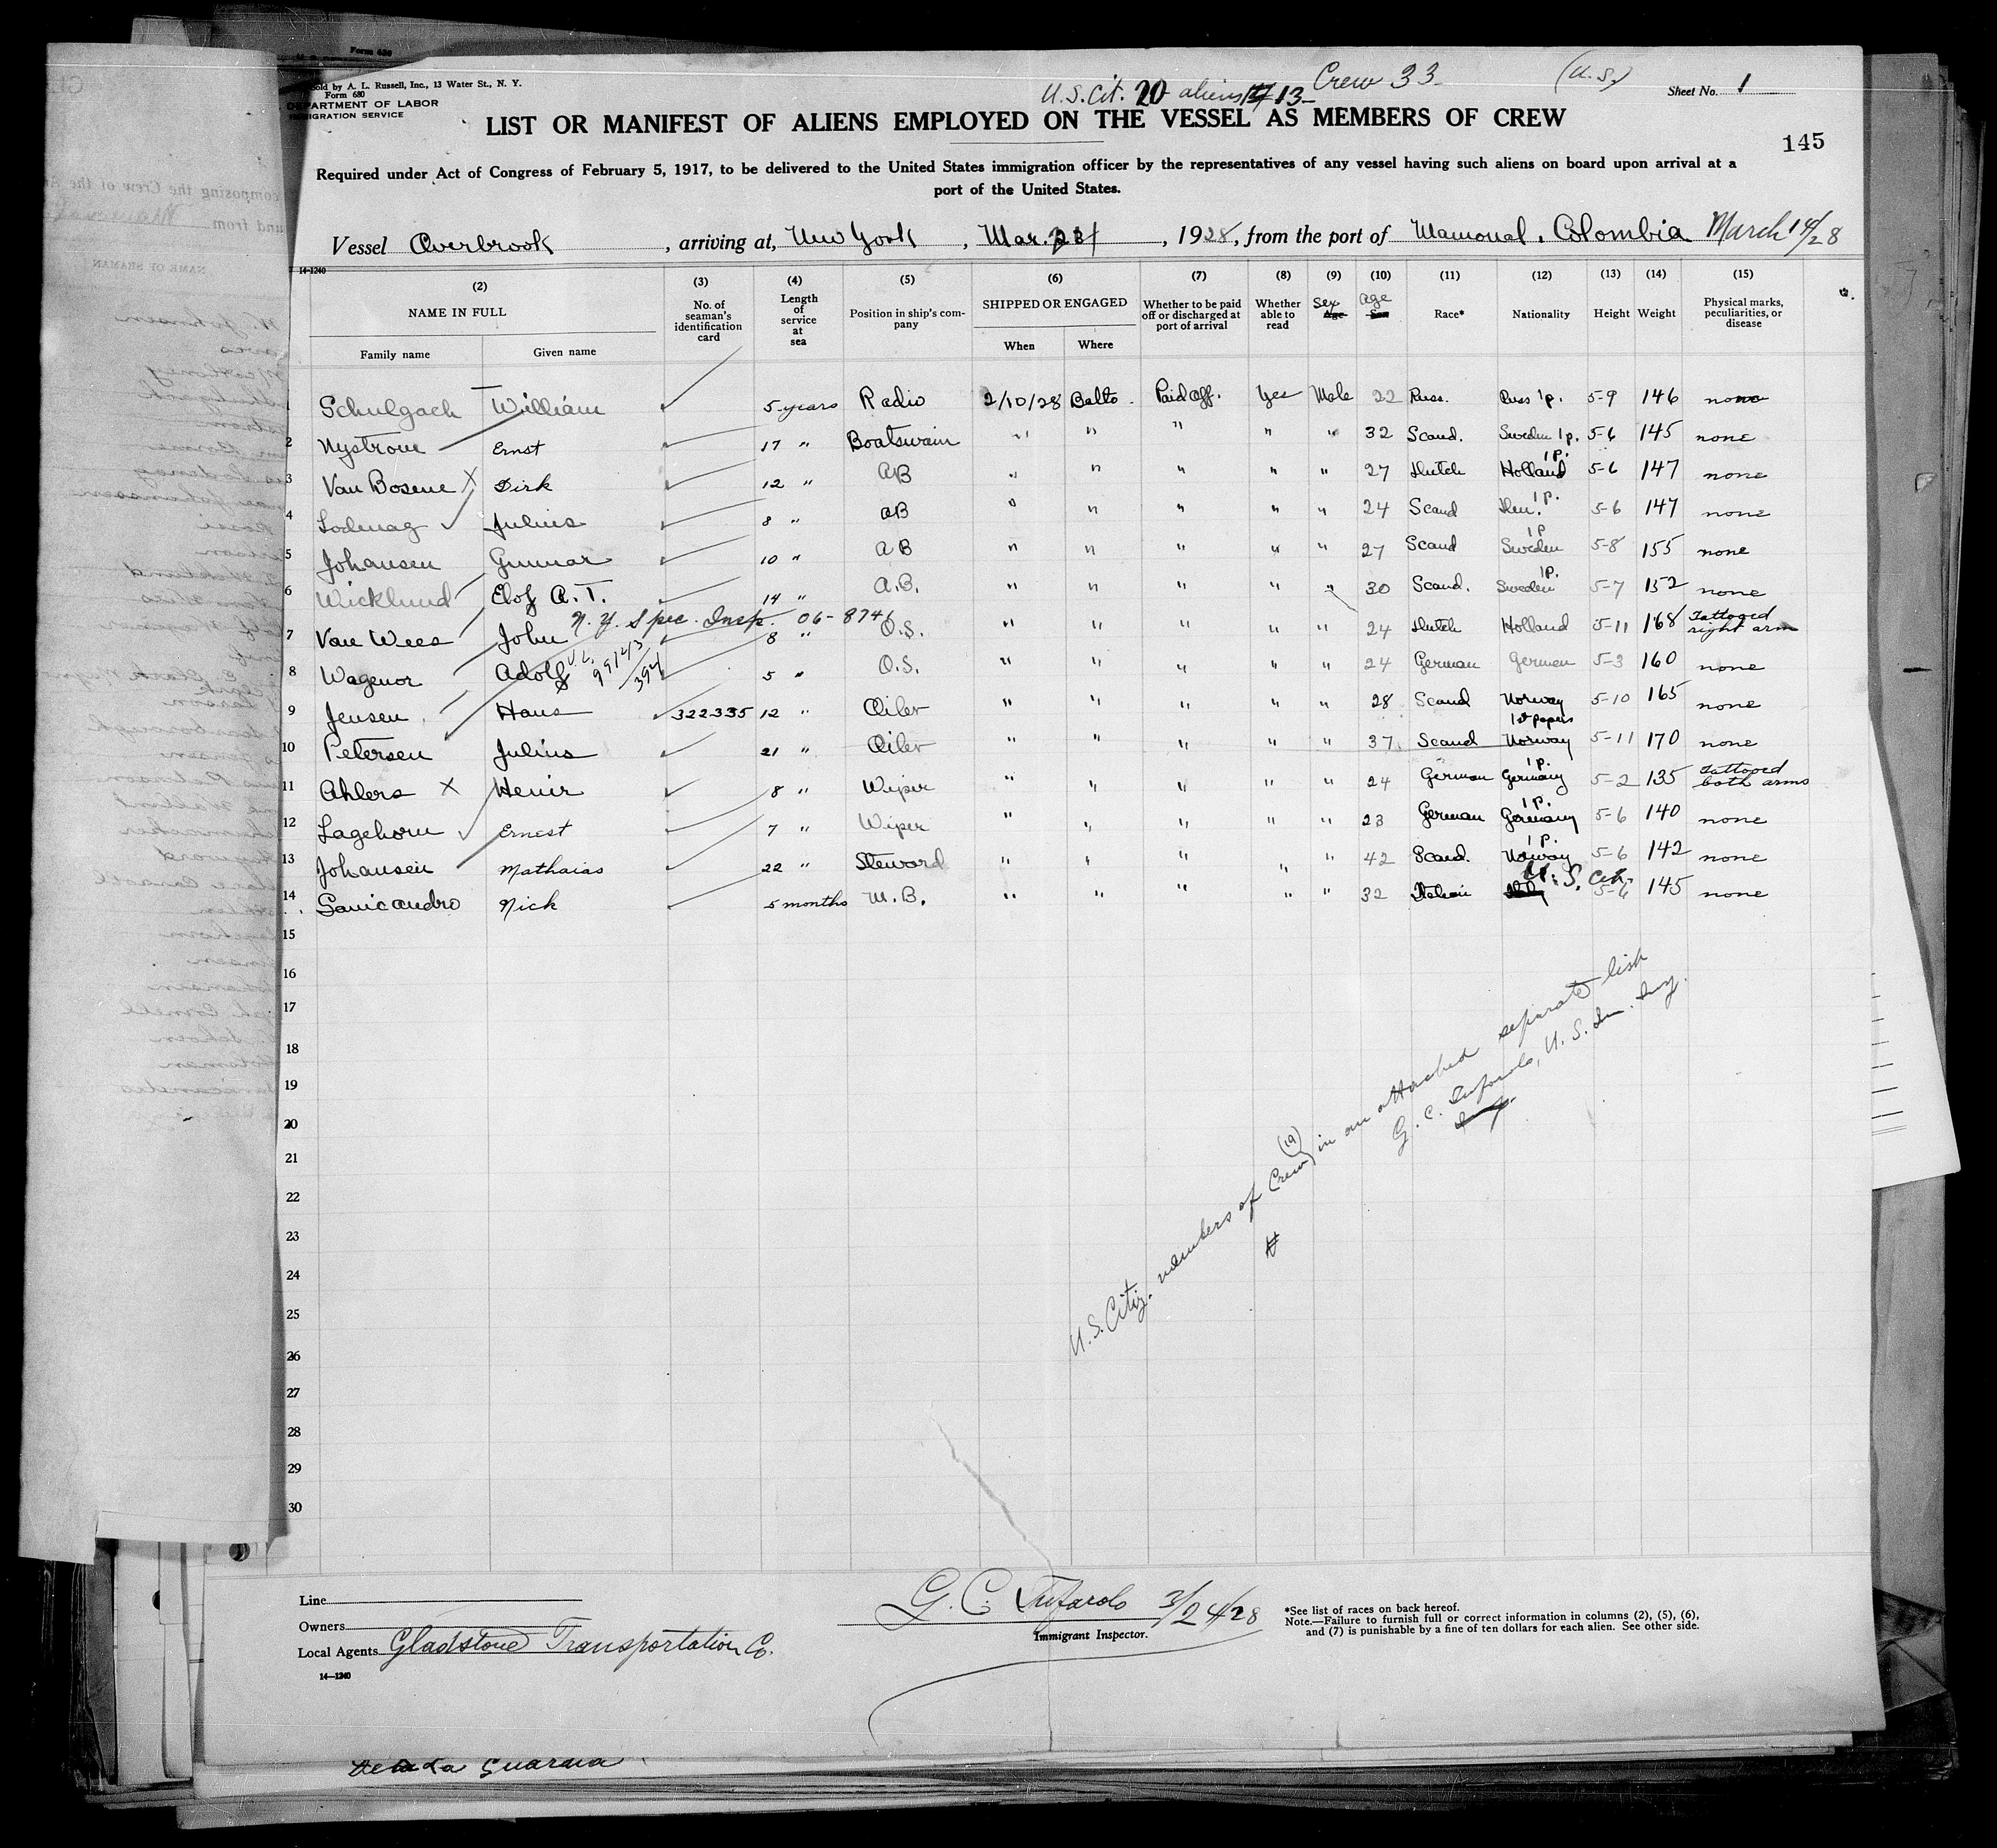 Form 630
Sold by A. L. Russell, Inc., 13 Water St., N. Y.
Form 680
DEPARTMENT OF LABOR
IMMIGRATION SERVICE
U.S. Cit. 20 aliens 13 - Crew 33
(U.S.)
Sheet No. 1
LIST OR MANIFEST OF ALIENS EMPLOYED ON THE VESSEL AS MEMBERS OF CREW
145
Required under Act of Congress of February 5, 1917, to be delivered to the United States immigration officer by the representatives of any vessel having such aliens on board upon arrival at a
port of the United States.
Vessel Overbrook, arriving at, New York, Mar. 1928, from the port of Mamonal, Colombia March 14/28
14-1240
(2) (3) (4) (5) (6) (7) (8) (9) (10) (11) (12) (13) (14) (15)
NAME IN FULL
Family name Given name
No. of seaman's identification card
Length of service at sea
Position in ship's company
SHIPPED OR ENGAGED
When Where
Whether to be paid off or discharged at port of arrival
Whether able to read
Sex Age
Age Sex
Race*
Nationality
Height
Weight
Physical marks, peculiarities, or disease
1 Schulgach William 5 years Radio 2/10/28 Balto. Paid Off. Yes Male 22 Russ. Russ 1p. 5-9 146 none
2 Nystrom Ernst 17 " Boatswain " " " " " 32 Scand. Sweden 1p. 5-6 145 none
3 Van Bosene X Dirk 12 " AB " " " " " 27 Dutch Holland 1p. 5-6 147 none
4 Lodenag Julius 8 " AB " " " " " 24 Scand Den. 1p. 5-6 147 none
5 Johansen Gunnar 10 " AB " " " " " 27 Scand Sweden 1p 5-8 155 none
6 Wicklund Elof A. T. 14 " A.B. " " " " " 30 Scand. Sweden 1p. 5-7 152 none
N.Y. Spec. Insp. 06-8746
7 Van Wees John 8 " O.S. " " " " " 24 Dutch Holland 5-11 168 Tattooed right arm
8 Wagenor Adolf 9912/3 /394 5 " O.S. " " " " " 24 German German 5-3 160 none
9 Jensen Hans 322335 12 " Oiler " " " " " 28 Scand Norway 1st papers 5-10 165 none
10 Petersen Julius 21 " Oiler " " " " " 37 Scand Norway 5-11 170 none
11 Ahlers X Henir 8 " Wiper " " " " " 24 German Germany 1p. 5-2 135 Tattooed both arms
12 Lagehorn Ernest 7 " Wiper " " " " " 23 German Germany 1p. 5-6 140 none
13 Johansen Mathaias 22 " Steward " " " " " 42 Scand. Norway 1p. 5-6 142 none
14 Sanicandro Nick 5 months M.B. " " " " " 32 Italian U.S. Cit. 5-6 145 none
15
16
17
18
19
20
21
22
23
24
25
26
27
28
29
30
U.S. Citiz. members of Crew (19) in an attached separate list
G. C. Tufarolo, U. S. Im. Insp.
Line
Owners
Local Agents Gladstone Transportation Co.
14—1240
G. C. Tufarolo 3/24/28
Immigrant Inspector.
*See list of races on back hereof.
Note.—Failure to furnish full or correct information in columns (2), (5), (6),
and (7) is punishable by a fine of ten dollars for each alien. See other side.
Guardia